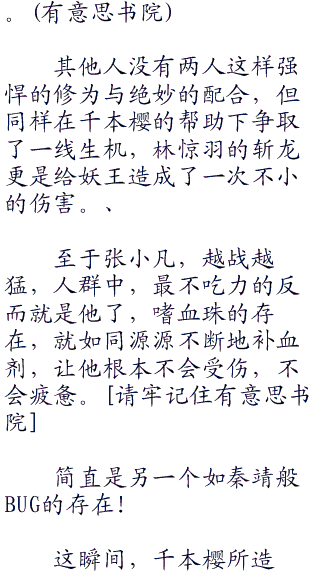 。(有意思书院)
其他人没有两人这样强
悍的修为与绝妙的配合，但
同样在千本樱的帮助下争取
了一线生机，林惊羽的斩龙
更是给妖王造成了一次不小
的伤害。、
至于张小凡，越战越
猛，人群中，最不吃力的反
而就是他了，嗜血珠的存
在，就如同源源不断地补血
剂，让他根本不会受伤，不
会疲惫。[请牢记住有意思书
院]
简直是另一个如秦靖般
BUG的存在!
这瞬间，千本樱所造